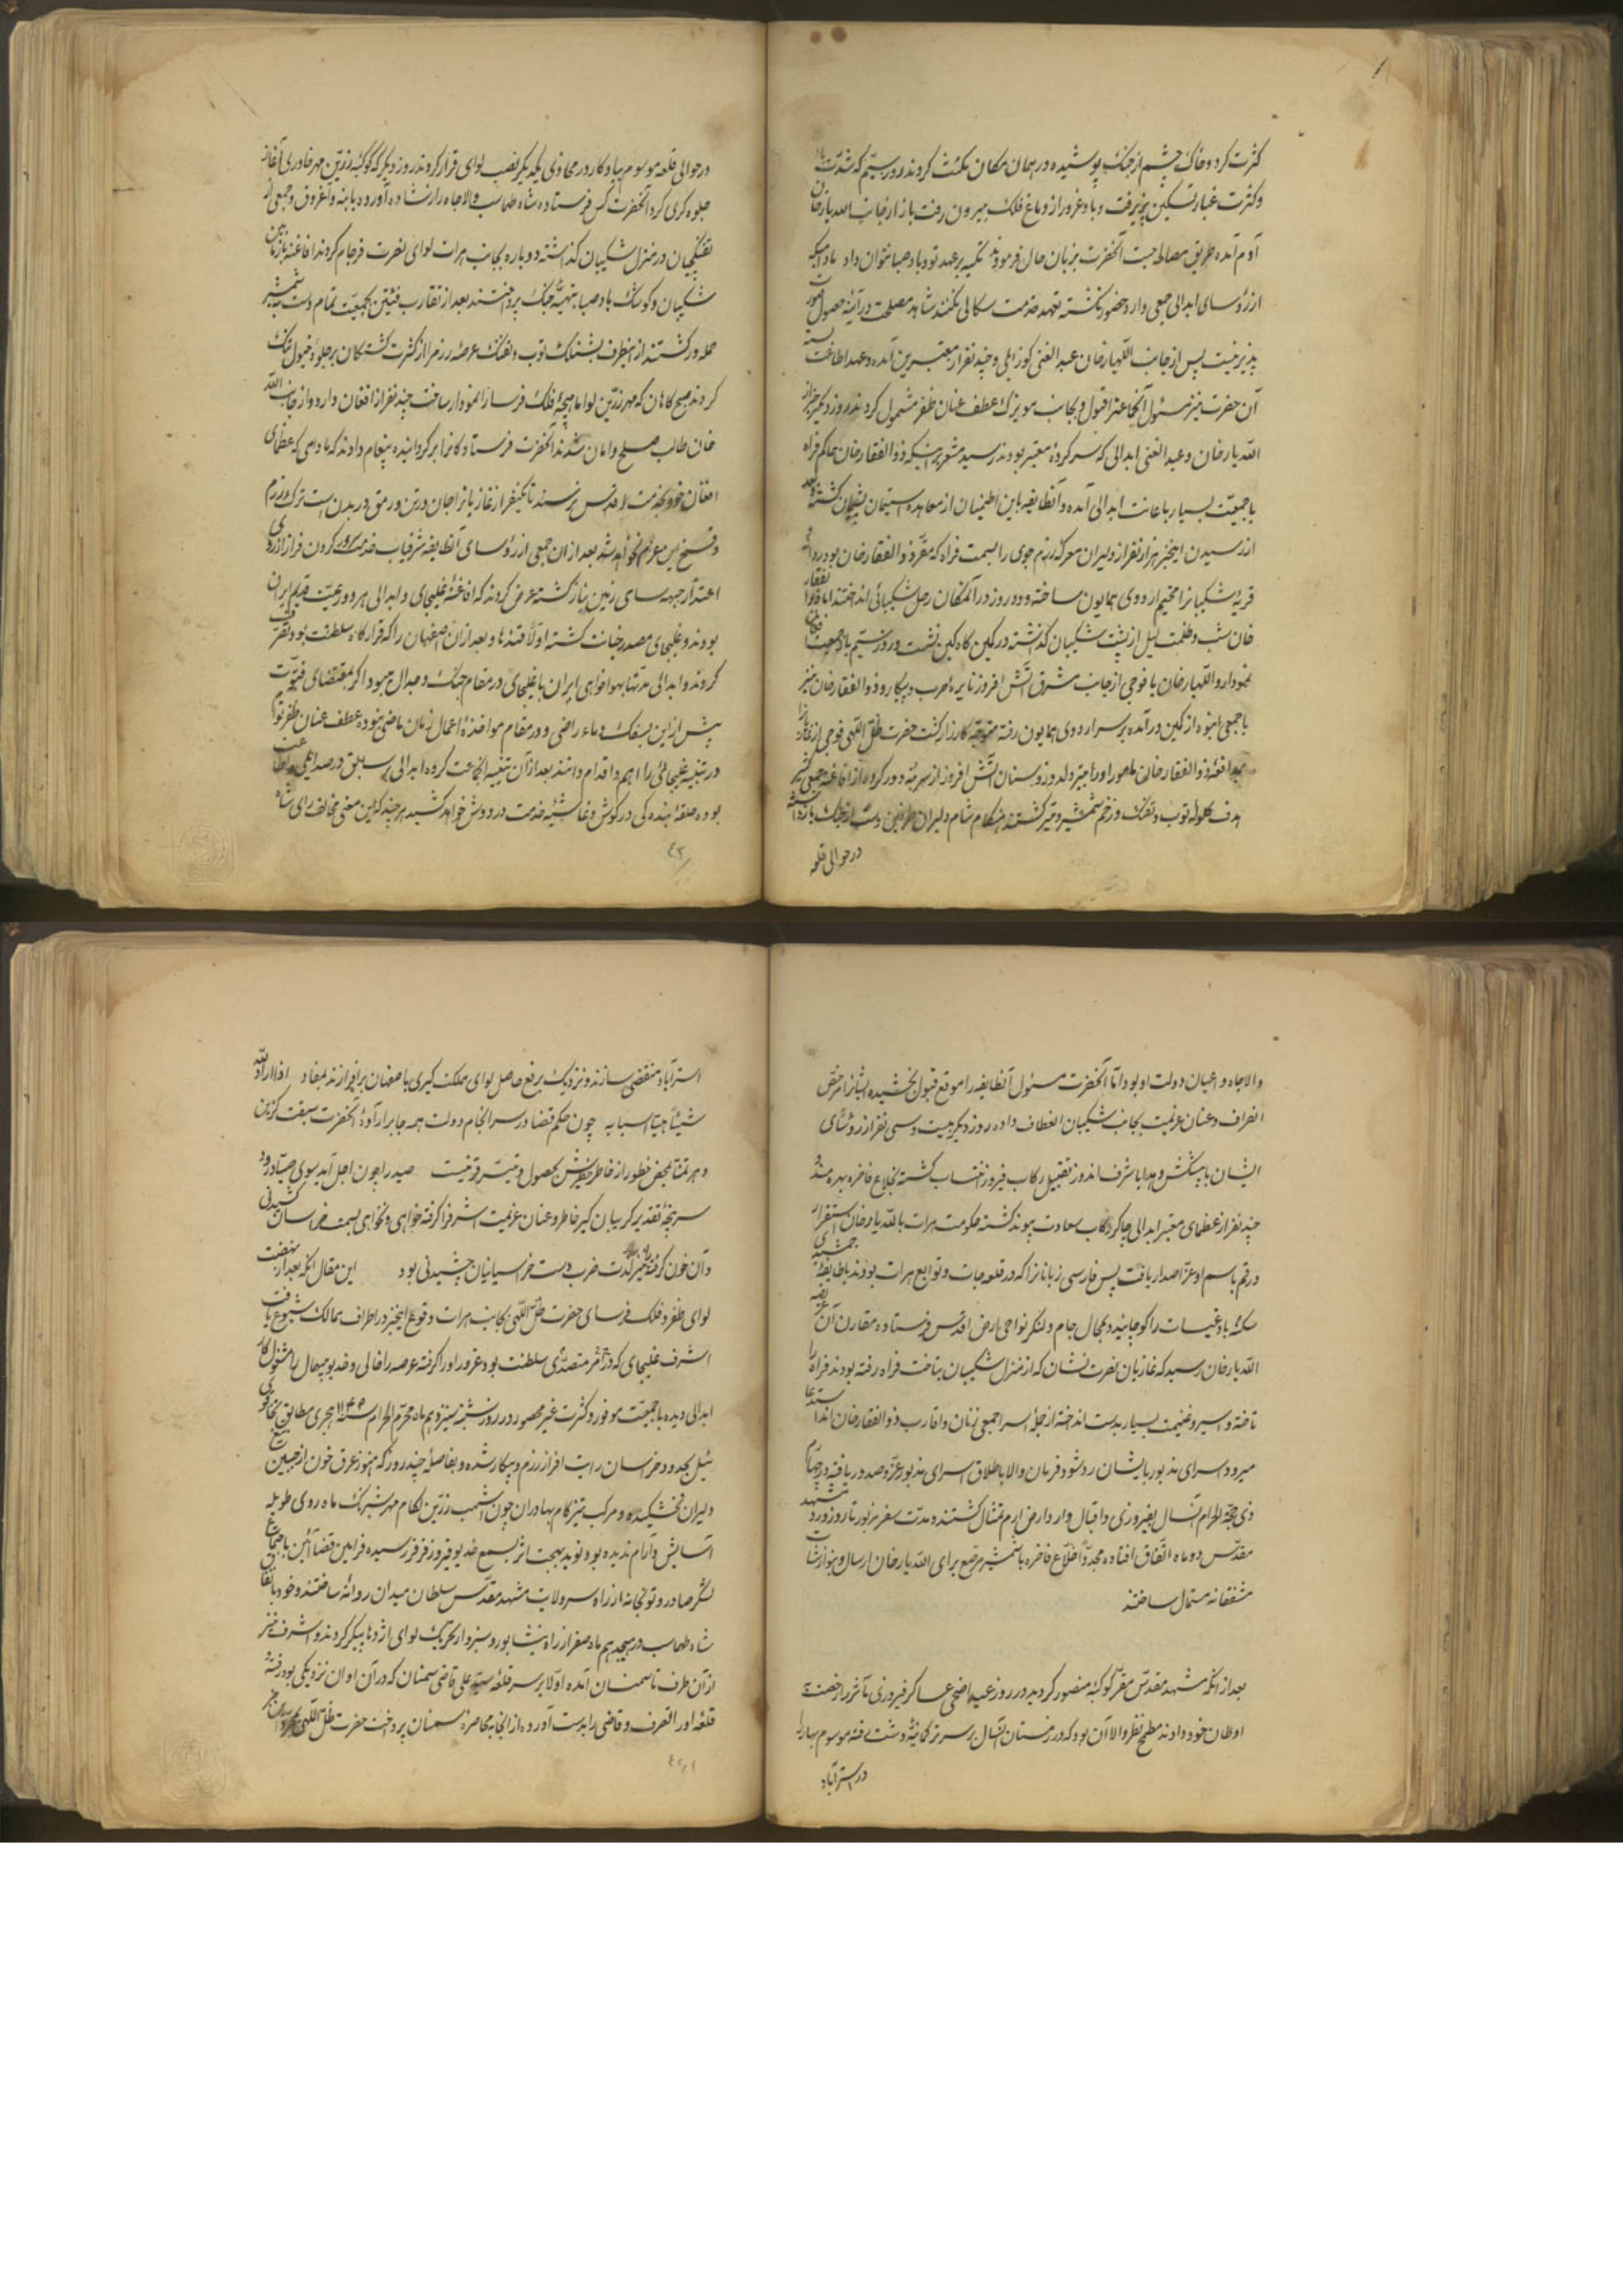 کثرت کرد و خاک چشم از جنگ پوشیده در همان مکان مکث کردند روز سیّم که شدّت باد
و کثرت غبار تسکین پذیرفت و باد غرور از دماغ فلک بیرون رفت باز از جانب الله یار خان
آدم آمده طریق مصالحه جست آنحضرت بزبان حال فرمودند تکیه بر عهد تو و باد صبا نتوان داد مادامیکه
از رؤسای ابدالی جمعی وارد حضور نگشته تعهد خدمت سکالی نکنند شاهد مصلحت در آینهٔ حصول صورت
پذیر نیست پس از جانب اللهیار خان عبد الغنی کوزایلی و چند نفر از معتبرین آمده و عهد اطاعت بسته
آن حضرت نیز مسئول آنها عز قبول و بجانب موبزک عطف عنان ظفر مشمول کردند روز دیگر خبر از
الله یار خان و عبد الغنی ابدالی که سرکردهٔ معتبر بودند رسید مشعر بر اینکه ذو الفقار خان حاکم فراه
با جمعیّت بسیار باعانت ابدالی آمده و آنطایفه باین اطمینان از معاهده استیمان پشیمان کشته بعد
از رسیدن اینخبر هزار نفر از دلیران معرکهٔ رزم جوی را بسمت فراه که مقرّ ذو الفقار خان بود روانه و
قریهٔ شکیبانرا مخیم اردوی همایون ساخته و دو روز در آنمکان رحل شکیبائی انداختند اما ذو الفقار
خان شب و ظلمت لیل از پشت شکیبان کذشته در کمین کاه کین نشست و روز سیّم با جمعیت افغان
نمودار و اللهیار خان با فوجی از جانب مشرق آتش افروز نایرهٔ حرب و پیکار و ذو الفقار خان نیز
با جمعی انبوه از کمین در آمده بر سر اردوی همایون رفته متوجه کارزار کشت حضرت ظل اللهی فوجی از غازیانرا
بمدافعهٔ ذو الفقار خان مامور و او را میتر ولدوز و سنان آتش افروز از سر بنه دور کرده از افاغنه جمعی کثیر
هدف کلوله توپ و تفنک و زخم شمشیر و تیر کشتند هنکام شام دلیران طرفین دست از جنک باز داشته
در حوالی قلعه
در حوالی قلعه موسوم بیادکار در محاذی یکدیگر نصب لوای قرار کردند روز دیگر که کوکبهٔ زرّین مهر خاوری آغاز
جلوه کری کرد آنحضرت کس فرستاده شاه طهماسب والاجاه را از شاده آورده با بنه و آغروق و جمعی از
تفنکچیان در منزل شکیبان کذاشته دوباره بجانب هرات لوای نصرت فرجام کردند افاغنه باز مابین
شکیبان و کوسک باد صبا بتهیهٔ جنک پرداختند بعد از تقارب فئتین بجمعیّت تمام دست بشمشیر
حمله ور کشتند از اینطرف بشنلک توپ و تفنک عرصهٔ رزم را از کثرت کشتکان بر جلوهٔ خیول تنک
کردند صبح کاهان که مهر زرّین لوا ماهچهٔ فلک فرسا را نمودار ساخت چند نفر از افغان وارد و از جانب الله
خان طالب صلح و امان شدند آنحضرت فرستادکانرا بر کردانیده پیغام دادند که مادامی که عظمای
افغان خود بخدمت اقدس نرسند تا یکنفر از غازیانرا جان در تن و رمق در بدن است ترک رزم
و فسخ این عزم نخواهد شد بعد از آن جمعی از رؤسای آنطایفه شرفیاب خدمت کردون فراز از روی
اعتذار جبهه سای زمین نیاز کشته عرض کردند که افاغنهٔ غلیجای و ابدالی هر دو رعیّت قدیم ایران
بودند و غلیجای مصدر خیانت کشته اولا قندهار و بعد از آن صفهان را که قرار کاه سلطنت بود تصرّف
کردند و ابدالی مدتها بهوا خواهی ایران با غلیجای در مقام جنک و جدال میبود اکر بمقتضای فتوّت
پیش از این بسفک دماء راضی و در مقام مواخذهٔ اعمال زمان ماضی نبوده عطف عنان ظفر توأم
در تنبیه غلیجائی را اهم و اقدام دانند بعد از آن تنبیه آنجماعت کروه ابدالی بر سابق در صدد ایلی و اطاعت
بوده حلقهٔ بنده کی در کوش و غاشیهٔ خدمت در دوش خواهد کشید هر چند که این معنی مخالف رای شاه
٤٢
والاجاه و اعیان دولت او بود امّا آنحضرت مسئول آنطایفه را موقع قبول بخشیده ایشانرا مرخّص
انصراف و عنان عزیمت بجانب شکیبان انعطاف داده روز دیکر بیست و سی نفر از رؤسای
ایشان با پیشکش و هدایا شرف اندوز تقبیل رکاب فیروز انتساب کشته بخلاع فاخره بهره مند و
چند نفر از عظمای معتبر ابدالی چاکر رکاب سعادت پیوند کشته حکومت هرات باللّه یار خان استقرار
و رقم باسم او عزّ اصدار یافت پس فارسی زبانانرا که در قلعه جات و توابع هرات بودند با طایفهٔ جمشیدی
سکنهٔ بادغیسات را کوچانیده بمحال جام و لنکر نواحی ارض اقدس فرستاده مقارن آن عریضه
الله یار خان رسید که غازیان نصرت نشان که از منزل شکیبان بتاخت فراه رفته بودند فراه را
تاخته و اسیر و غنیمت بسیار بدست انداخته از جملهٔ اسرا جمعی زنان و اقارب ذو الفقار خان اند استدعا
میرود اسرای مذبور بایشان رد شود فرمان والا باطلاق اسرای مذبور عزّ صدور یافته در چهارم
ذی حجّة الحرام آنسال بفیروزی و اقبال وارد ارض ارم تمثال کشتند و مدت سفر مزبور تا روز ورود مشهد
مقدّس دو ماه اتّفاق افتاده مجدّدا خلّاع فاخره با شمشیر مرصّع برای الله یار خان ارسال و بنوازشات
مشفقانه مستمال ساختند
بعد از آنکه مشهد مقدّس مقر کوکبهٔ منصور کردید در روز عید اضحی عساکر فیروزی مآثر را رخصت
اوطان خود دادند مطمح نظر والا آن بود که در زمستان آنسال بر سر ترکمانیهٔ دشت رفته موسوم بهار را
در استرآباد
استرآباد منقضی سازند و نزدیک برفع حاصل لوای مملکت کیری باصفهان بر افرازند بمفاد اذا اراد اللّه
شیئا هیّا اسبابه چون حکم قضا در سرانجام دولت همه جا بر ارادهٔ آنحضرت سبقت کزین
و هر تمنّا بمحض خطور از خاطر خطیرش بحصول و تیسّر قرینست صید را چون اجل آید سوی صیّاد رود
سرپنجهٔ تقدیر کریبان کیر خاطر و عنان عزیمت اشرف را کرفته خواهی و نخواهی بسمت خراسان کشیدنی
و آن خون کرفته را لذت ضرب دست خراسانیان چشیدنی بود این مقال آنکه بعد از نهضت
لوای ظفر فلک فرسای حضرت ظلّ اللّهی بجانب هرات و وقوع اینخبر در اطراف ممالک شیوع یافت
اشرف غلیجای که در آنقر متصدّی سلطنت بود غرور او را کرفته عرصه را خالی و خدیو بیهمال را مشغول کار
ابدالی دیده با جمعیّت موفور و کثرت غیر محصور در روز شنبه سیزدهم ماه محرّم الحرام سنهٔ ۱۱۴۲ هجری مطابق تخاقوی
ئیل بحدود خراسان رایت افراز رزم و پیکار شده و بفاصلهٔ چند روز که هنوز عرق خون از جبین تیغ
دلیران نخشکیده و مرکب تیز کام بهادران چون اشهب زرّین لکام مهر شبرنک ماه روی طویله
آسایش و آرام ندیده بود نوید بهجت اثر بسمع خدیو فیروز فر رسیده فرامین قضا آئین باجتماع
لشکر صادر و توپخانه از راه سر ولایت مشهد مقدّس سلطان میدان روانهٔ ساختند و خود باتفاق
شاه طهماسب در هیجدهم ماه صفر از راه نیشابور و سبزوار تحریک لوای اژدها پیکر کردند و اشرف نیز
از آن طرف تا سمنان آمده اوّلا بر سر قلعهٔ سیّد علی قاضی سمنان که در آن اوان نزدیکی بود رفته
قلعهٔ او را تصرف و قاضی را بدست آورده از آنجا بمحاصرهٔ سمنان پرداخت حضرت ظلّ اللّهی